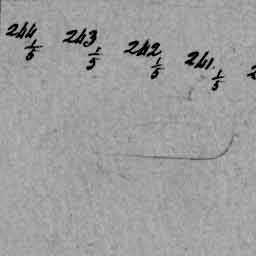 244 1/5 243 1/5 242 1/5 241 1/5